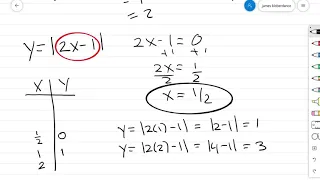 = 2
y = |2x-1|
2x-1 = 0
+1 +1
2x/2 = 1/2
x = 1/2
X Y
1/2 0
1 1
2
y = |2(1)-1| = |2-1| = 1
y = |2(2)-1| = |4-1| = 3